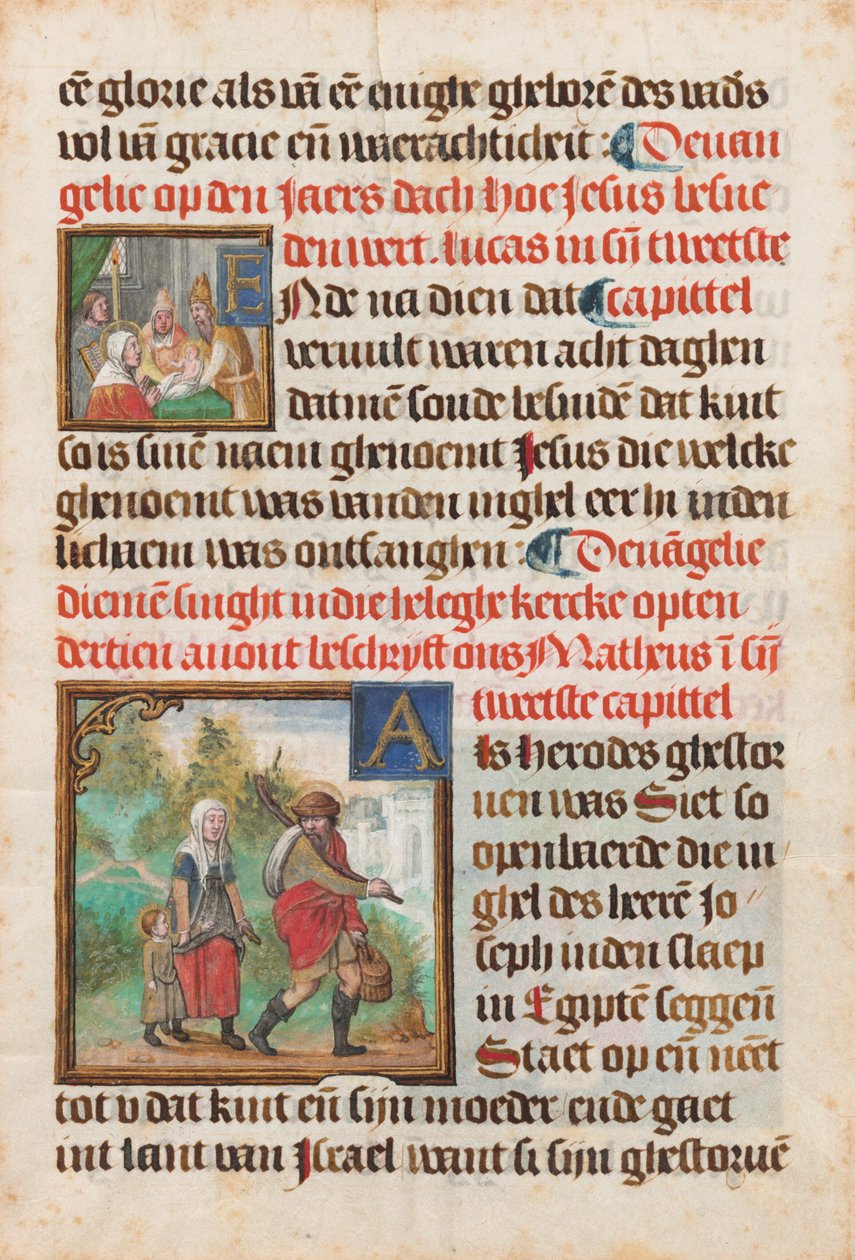 eē glorie als vā eē enighe gheborē des vad's
vol vā gracie eñ waerachticheit : Deuan
gelie op den Jaers dach Hoe Jesus besne
den wert. Lucas in sijn tweetste
E
Nde na dien dat capittel
veruult waren acht daghen
datmē soude besnidē dat kint
so is sinē naem ghenoemt Jesus die welcke
ghenoemt was vanden inghel eer hi inden
lichaem was ontfanghen : Deuāgelie
diemē singht in die heleghe kercke op ten
dertien auont beschrijft ons Matheus ī sijn
tweetste capittel
A
ls Herodes ghestor
uen was Siet so
openbaerde die in
ghel des heerē Jo
seph inden slaep
in Egiptē seggeñ
Staet op eñ neēt
tot v dat kint eñ sijn moeder ende gaet
int lant van Israel want si sijn ghestoruē